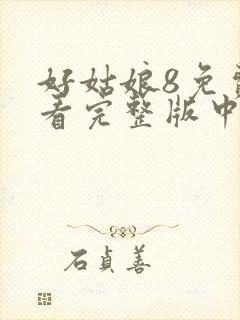 好姑娘8免
看完整版中
石貞善